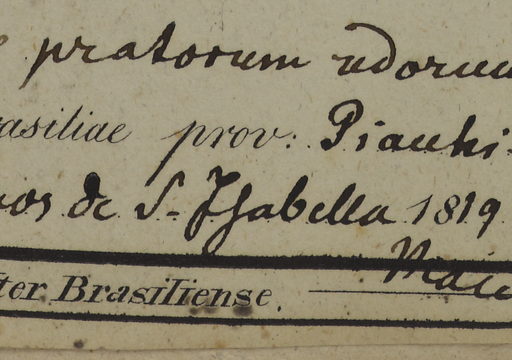 pratorum udorum
asiliae prov: Piauhi-
os de S. Ysabella 1819
ter Brasiliense.